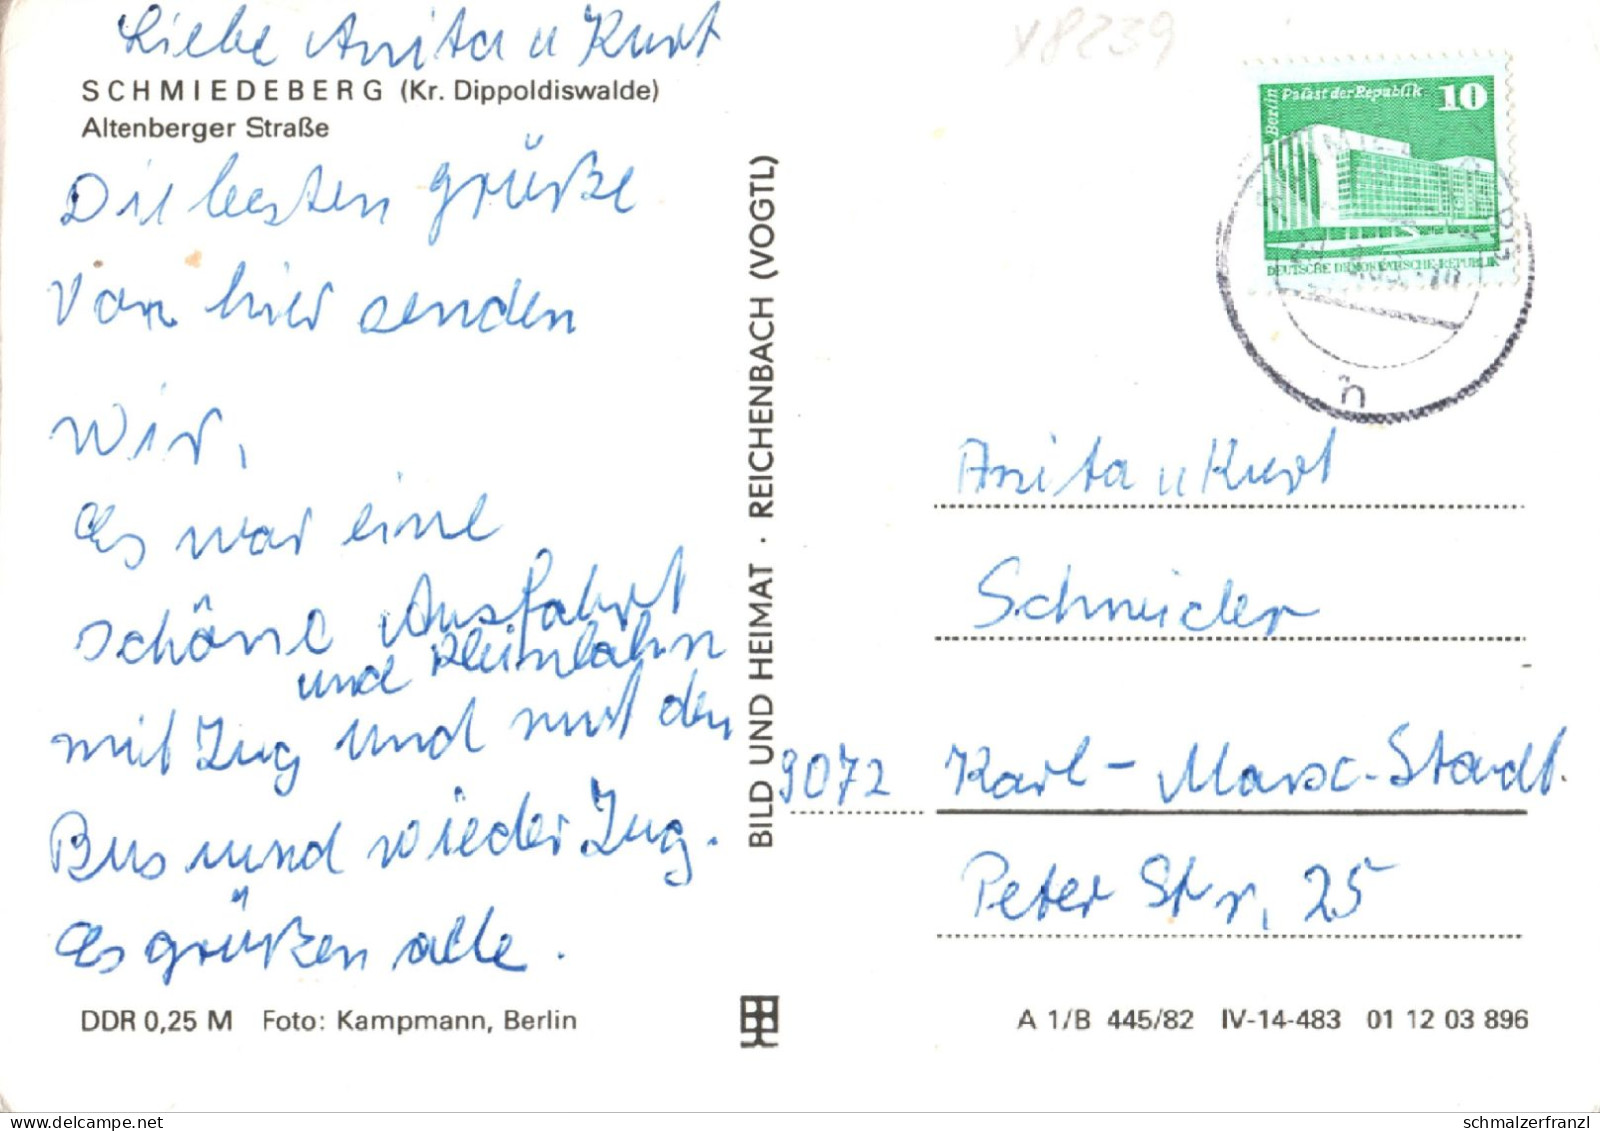 Liebe Anita u Kurt
SCHMIEDEBERG (Kr. Dippoldiswalde)
Altenberger Straße
Die besten Grüße
Von hier senden
Wir,
Es war eine
schöne Ausfahrt
und Kleinbahn
mit Zug und mit den
Bus und wieder Zug.
Es grüßen alle.
DDR 0,25 M Foto: Kampmann, Berlin
BILD UND HEIMAT · REICHENBACH (VOGTL)
X8239
Berlin
Palast der Republik
10
DEUTSCHE DEMOKRATISCHE REPUBLIK
n
Anita u Kurt
Schneider
9072 Karl-Marx-Stadt.
Peter Str. 25
A 1/B 445/82 IV-14-483 01 12 03 896
schmalzerfranzl